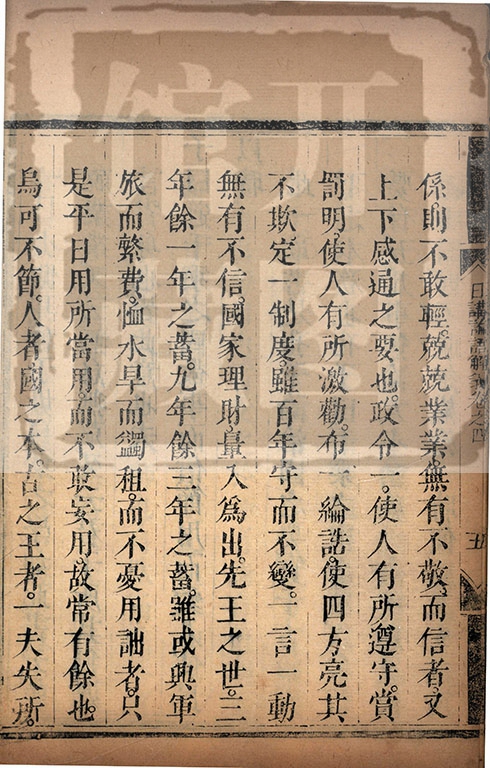 係則不敢輕。兢兢業業無有不敬。而信者又
上下感通之要也。政令一。使人有所遵守。賞
罰明。使人有所激勸。布一綸誥。使四方亮其
不欺。定一制度。雖百年守而不變。一言一動
無有不信。國家理財量入爲出。先王之世。三
年餘一年之蓄。九年餘三年之蓄。雖或興軍
旅而繁費。恤水旱而蠲租。而不憂用詘者。只
是平日用所當用。而不敢妄用。故常有餘也。
烏可不節。人者國之本。古之王者。一夫失所。